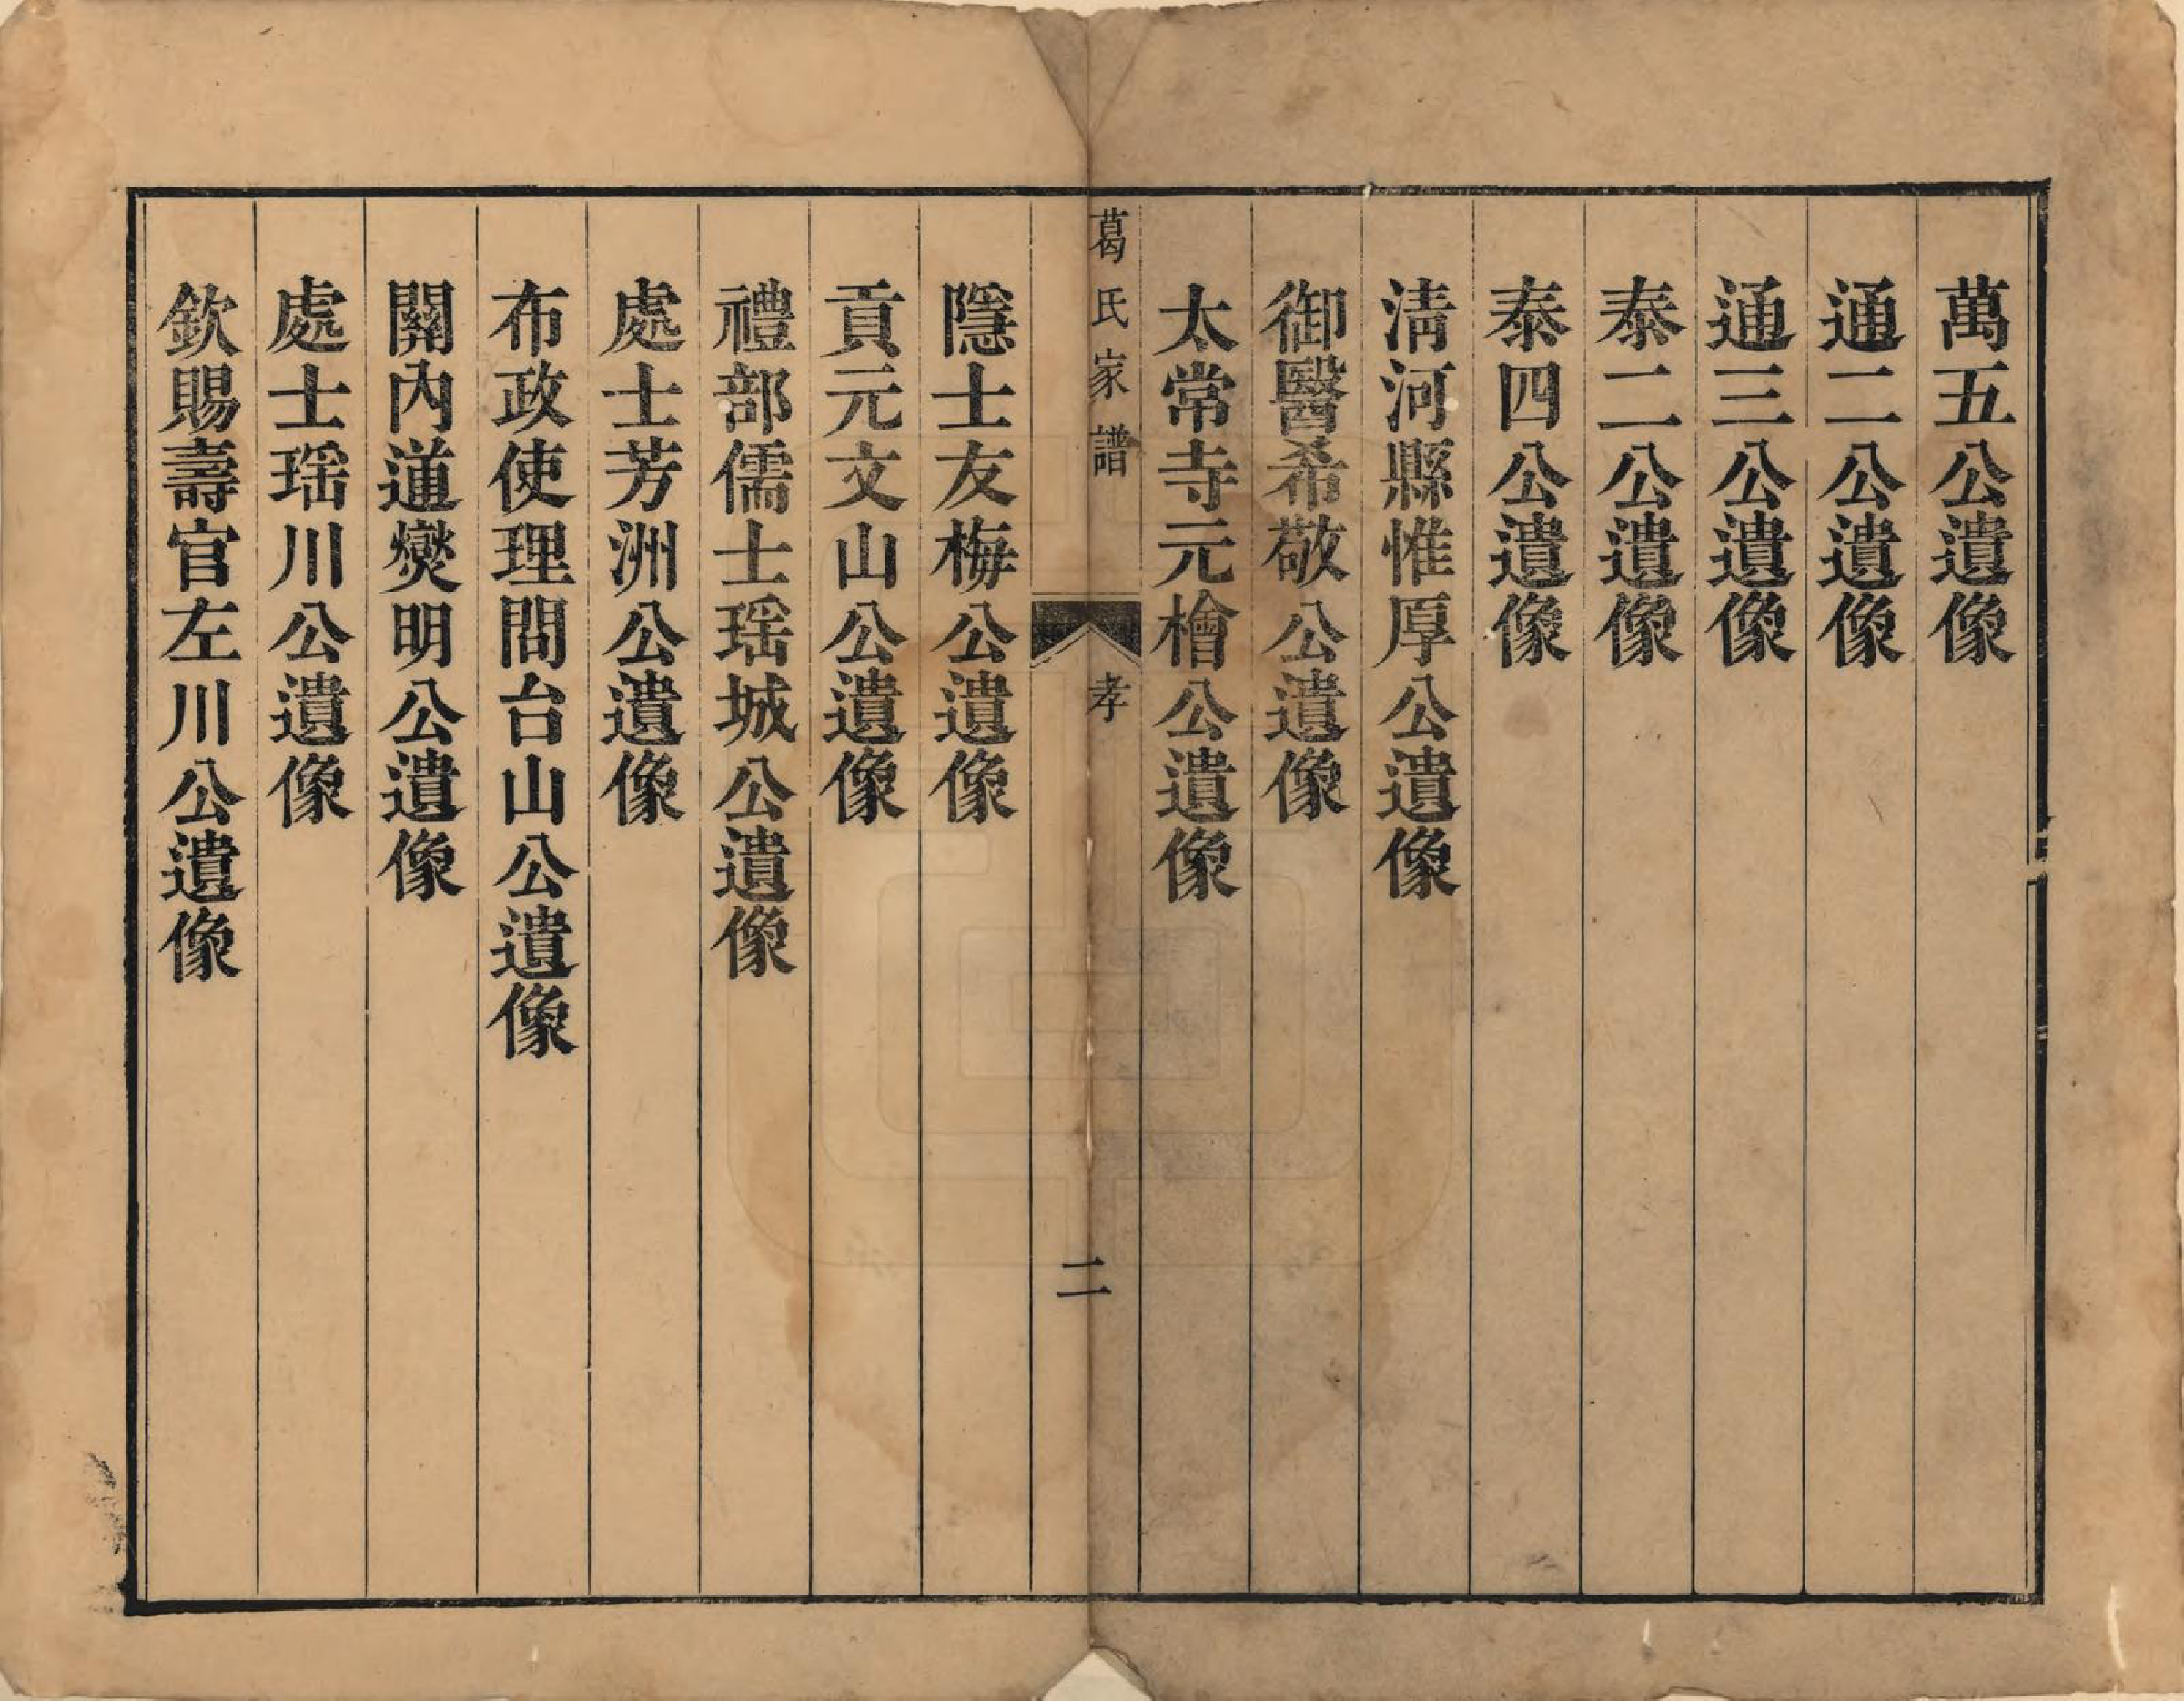 萬五公遺像
通二公遺像
通三公遺像
泰二公遺像
泰四公遺像
淸河縣惟厚公遺像
御醫希敬公遺像
太常寺元檜公遺像
葛氏家譜 孝 二
隱士友梅公遺像
貢元文山公遺像
禮部儒士瑶城公遺像
處士芳洲公遺像
布政使理問台山公遺像
關內道爕明公遺像
處士瑶川公遺像
欽賜壽官左川公遺像